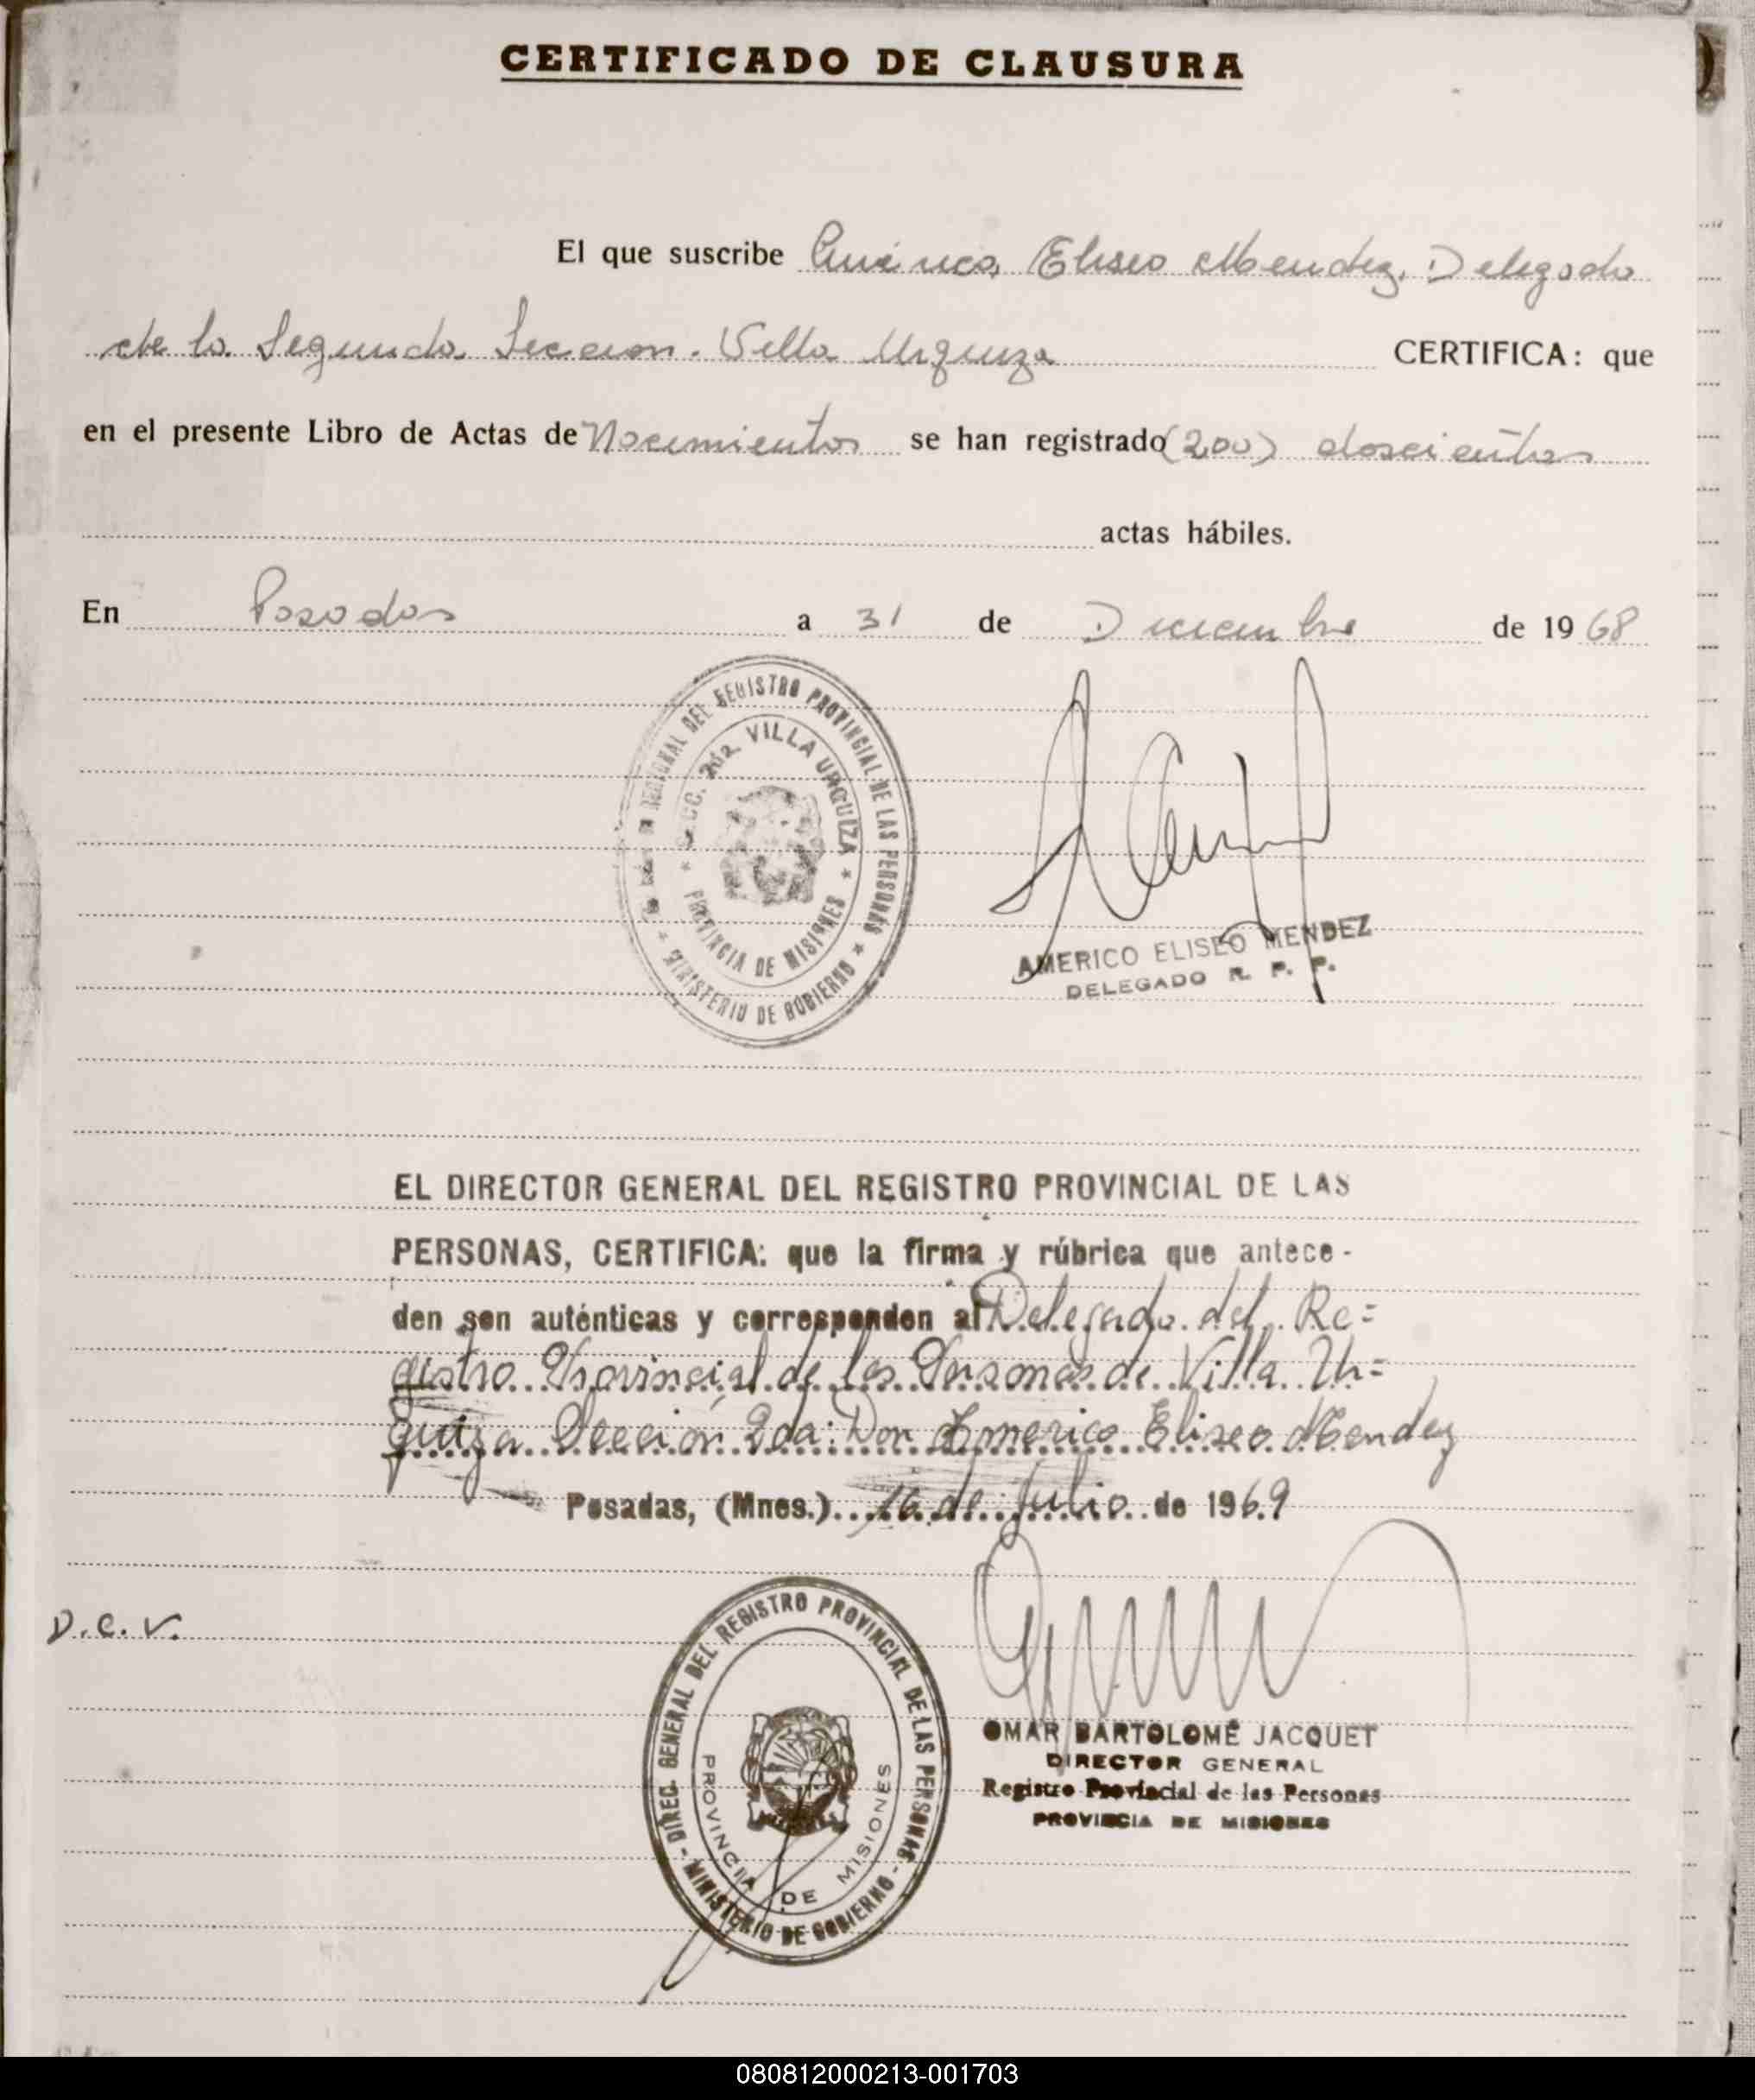 CERTIFICADO DE CLAUSURA
El que suscribe Américo Eliseo Mendez, Delegado
de la Segunda Seccion. Villa Urquiza CERTIFICA: que
en el presente Libro de Actas de Nacimientos se han registrado (200) doscientas
actas hábiles.
En Posadas a 31 de Diciembre de 1968
REGIONAL DEL REGISTRO PROVINCIAL DE LAS PERSONAS
SECC. 2da. VILLA URQUIZA
PROVINCIA DE MISIONES
MINISTERIO DE GOBIERNO
AMERICO ELISEO MENDEZ
DELEGADO R. P. P.
EL DIRECTOR GENERAL DEL REGISTRO PROVINCIAL DE LAS
PERSONAS, CERTIFICA: que la firma y rúbrica que antece-
den son auténticas y corresponden al Delegado del Re=
gistro Provincial de las Personas de Villa Ur=
quiza Sección 2da: Don Americo Eliseo Mendez
Posadas, (Mnes.) 16 de Julio de 1969
D.C.V.
DIREC. GENERAL DEL REGISTRO PROVINCIAL DE LAS PERSONAS
PROVINCIA DE MISIONES
- MINISTERIO DE GOBIERNO -
OMAR BARTOLOMÉ JACQUET
DIRECTOR GENERAL
Registro Provincial de las Personas
PROVINCIA DE MISIONES
080812000213-001703